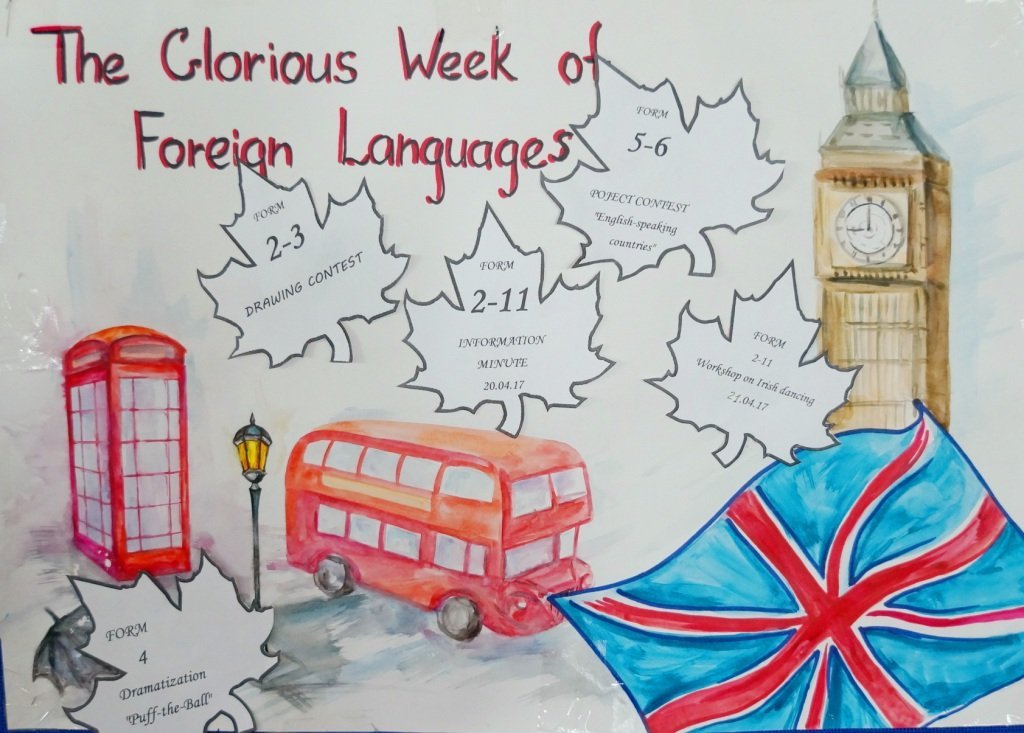 The Glorious Week of
Foreign Languages
FORM
5-6
POJECT CONTEST
"English-speaking
countries"
FORM
2-3
DRAWING CONTEST
FORM
2-11
INFORMATION
MINUTE
20.04.17
FORM
2-11
Workshop on Irish dancing
21.04.17
FORM
4
Dramatization
"Puff-the-Ball"